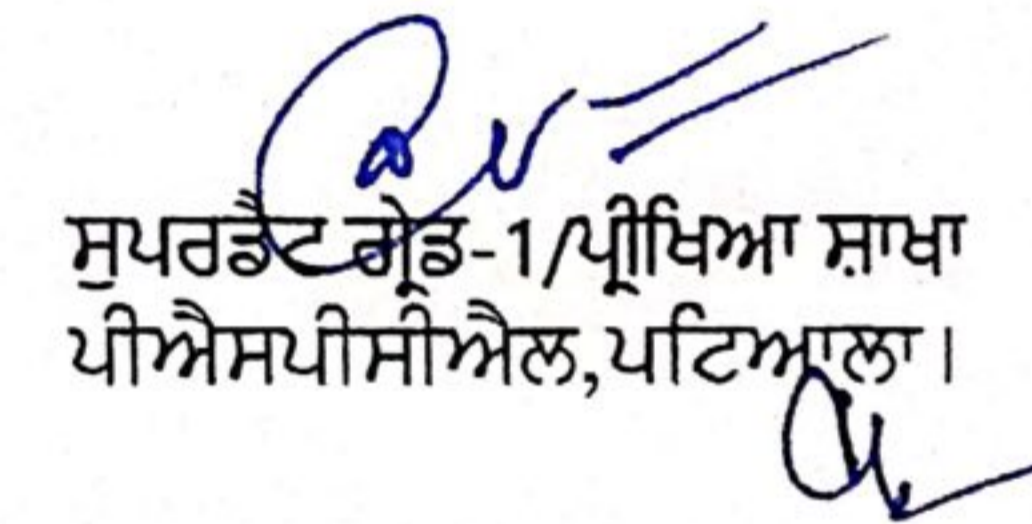 ਸੁਪਰਡੈਂਟ ਗ੍ਰੇਡ-1/ਪ੍ਰੀਖਿਆ ਸ਼ਾਖਾ
ਪੀਐਸਪੀਸੀਐਲ,ਪਟਿਆਲਾ।